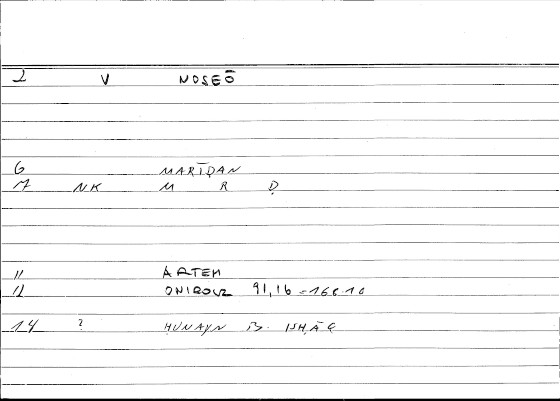 2 V NOSEŌ
6 MARĪḌAN
7 NK M R Ḍ
11 ARTEM
12 ONIROCR 91,16 = 166.10
14 ? HUNAYN B. ISHĀQ